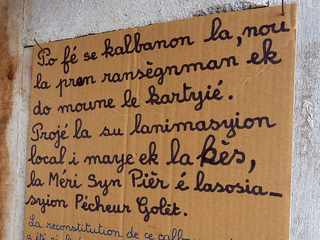 Po fé se kalbanon la, nou
la pran ransègnman ek
do moune le kartyié.
Projé la su lanimasyion
local i maye ek la kès,
la Méri Syn Pièr é lasosia-
syion Pècheur Golèt.
La reconstitution de ce calb-